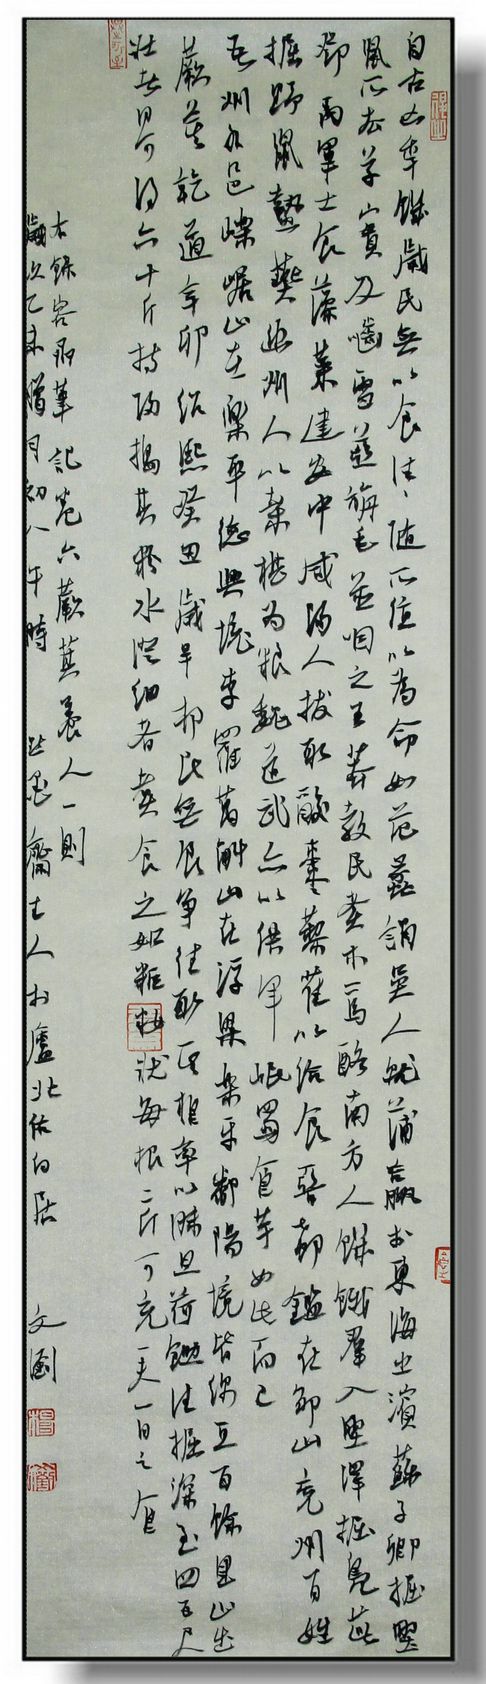 自古凶年饑歲民無以食往〻隨所值以為命如范蠡謂吳人就蒲蠃於東海之濱蘇子卿掘野
鼠所去草實及嚙雪與旃毛並咽之王莽教民煮木為酪南方人饑餓羣入野澤掘鳧茈
鄧禹軍士食藻菜建安中咸陽人拔取酸棗藜藿以給食晉郗鑑在鄒山兗州百姓
掘野鼠蟄燕幽州人以桑椹為粮魏道武亦以供軍岷蜀食芋如此而已
吾州外邑嵊崌山在樂平德興境李羅萬斛山在浮梁樂平鄱陽境皆綿亙百餘里山出
蕨萁乾道辛卯紹熙癸丑歲旱村民無食爭往取其根率以昧旦荷鋤往掘深至四五尺
壯者日可得六十斤持歸搗取粉水澄細者煮食之如粔籹狀每根二斤可充一夫一日之食
右錄容齋筆記卷六蕨萁養人一則
歲次乙未臘月初八午時 墨齋主人於廬北佑河居 文瀏